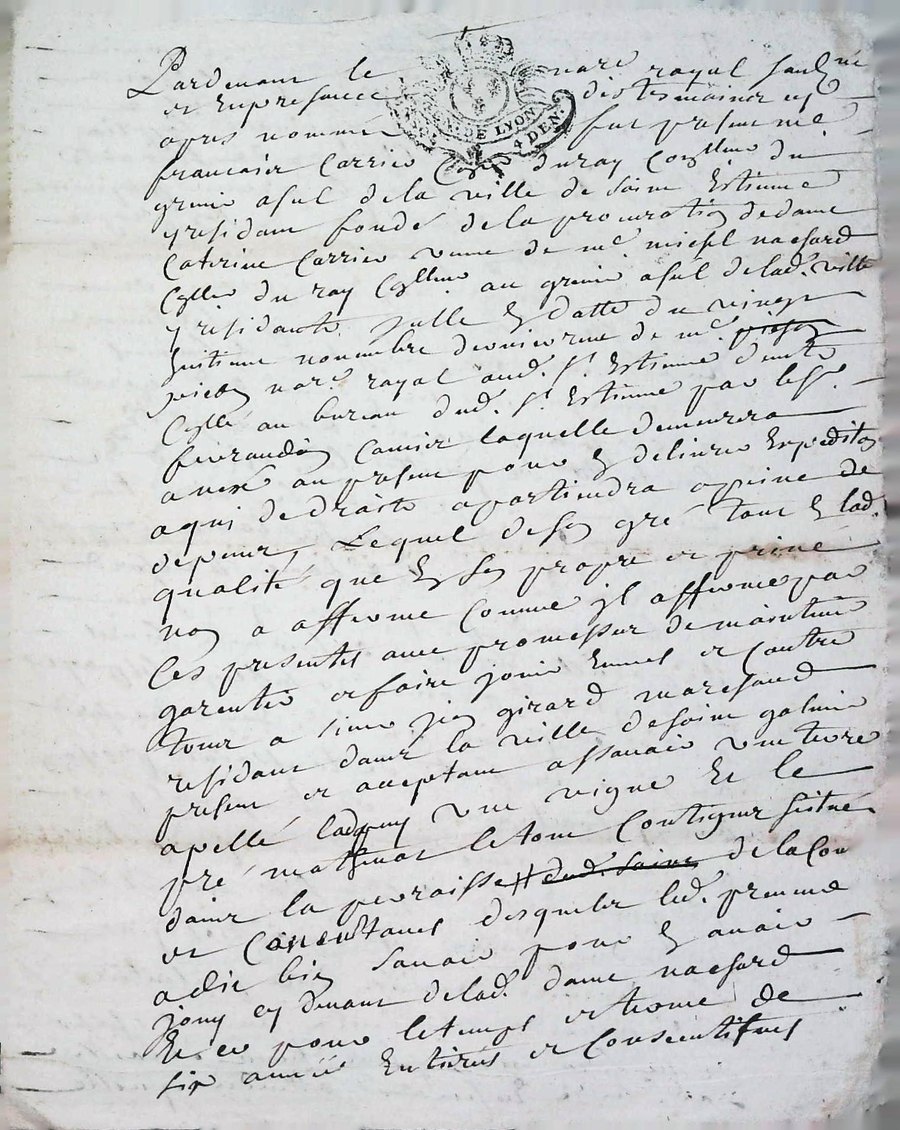 Pardevant le notre royal soubné
et En presance des tesmoincz cy
GEN. DE LYON
4 DEN.
apres nommés fut present me
francois Carrier Coner du roy Conllr du
grenier a sel de la ville de Saint Estienne
y residant fondé de la procuration de dame
Caterine Carrier veuve de me michel nachard
Cyller du roy Conller au grenier a sel de lad. ville
y residante Jcelle En datte du vingt
huitieme novembre dernier recue de me
notre royal aud. St. Estienne
Cyllé au bureau dud. St. Estienne par le Sr.
laquelle demeurera
anexé au present pour En delivrer Expedition
a qui de droits apartiendra a peine de
depens, Lequel de son gré tant En lad.
qualité que En son propre et priué
non a afferme Comme jl afferme par
Ces presentes avec promesse de maintenir
garentir et faire jouir Envers et Contre
tous a sieur jean girard marchand
residant dans la ville de Saint galmier
present et acceptant assavoir une terre
apellé une vigne Et le
pré le tout Contigus scitué
dans la parroisse # dud. Saint de la Con
et Contenances desquels led. preneur
a dit bien Savoir pour En avoir
jouy cy devant de lad. dame nachard
Et ce pour le temps et terme de
six années Entieres et Consecutives